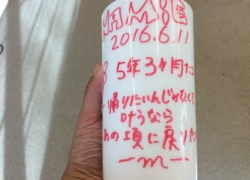 2016.6.11
5年3ヶ月た
帰りたいんじゃなくて
叶うなら
あの頃に戻りた
m